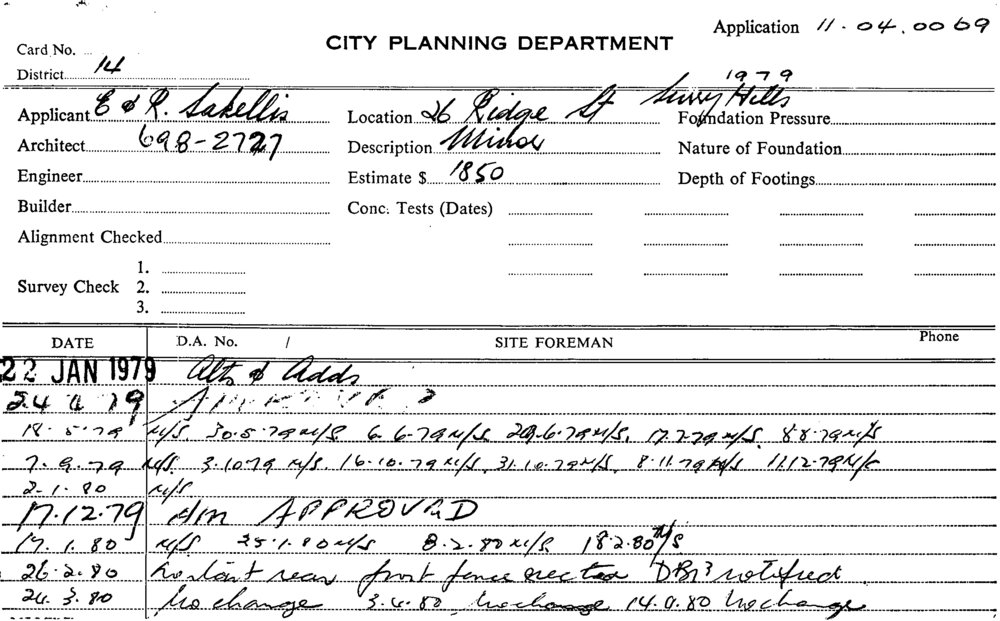 Application 11.04.0069
CITY PLANNING DEPARTMENT
Card No.
District 14
1979
Applicant E & R. Sakellis Location 26 Ridge St Surry Hills Foundation Pressure
Architect 698-2727 Description Minor Nature of Foundation
Engineer Estimate $ 1850 Depth of Footings
Builder Conc. Tests (Dates)
Alignment Checked
Survey Check 1.
2.
3.
DATE D.A. No. / SITE FOREMAN Phone
22 JAN 1979 Alts & Adds
24 4 79 APPROVED
18.5.79 N/S. 30.5.79 N/S 6.6.79 N/S 29.6.79 N/S. 17.7.79 N/S. 8.8.79 N/S
7.9.79 N/S. 3.10.79 N/S. 16.10.79 N/S. 31.10.79 N/S. 8.11.79 N/S 11.12.79 N/S
2.1.80 N/S
17.12.79 APPROVED
17.1.80 N/S 25.1.80 N/S 8.2.80 N/S 18.2.80 N/S
26.2.80 rear front fence erected notified
24.3.80 No change 3.4.80 No change 14.4.80 No change